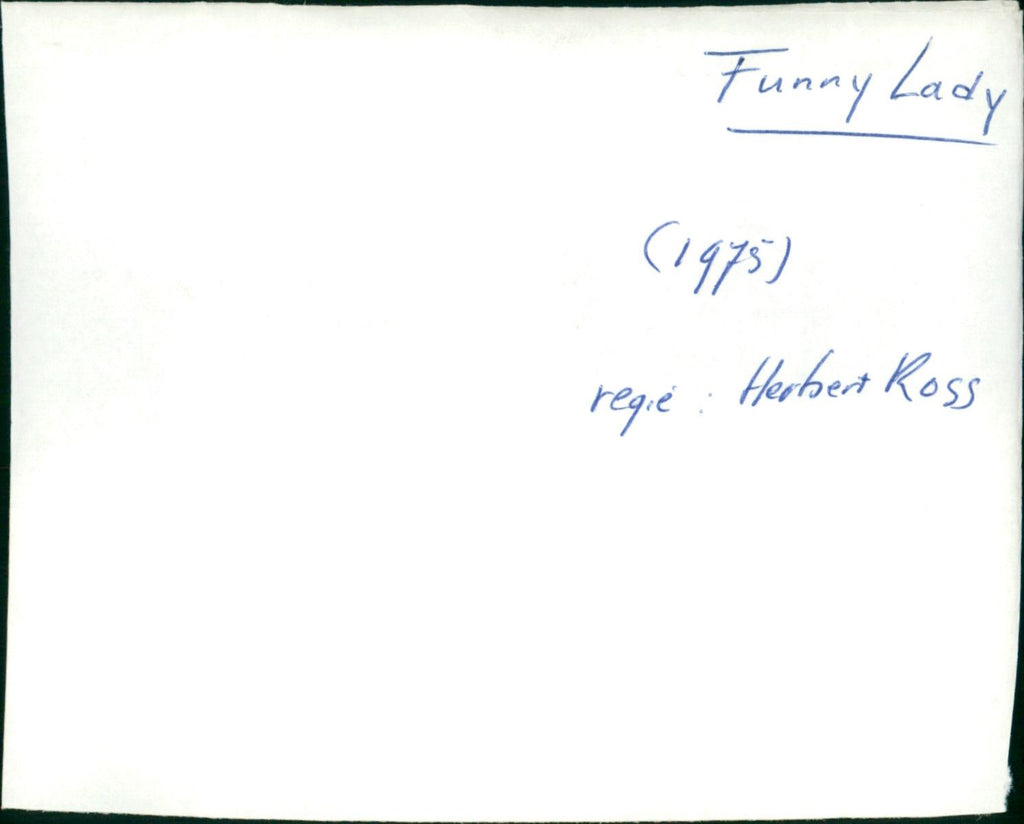 Funny Lady
(1975)
regie : Herbert Ross